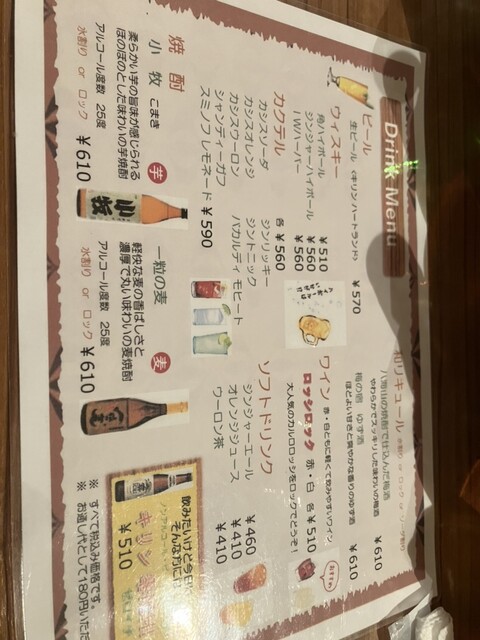 Drink Menu
ビール
生ビール (キリン ハートランド) ¥570
ウィスキー
角ハイボール ¥510
ジンジャーハイボール ¥560
I Wハーパー ¥560
カクテル 各 ¥560
カシスソーダ ジンリッキー
カシスオレンジ ジントニック
カシスウーロン バカルディ モヒート
シャンディーガフ
スミノフ レモネード ¥590
焼酎
小牧 こまき 芋
柔らかい芋の旨味が感じられる
ほのぼのとした味わいの芋焼酎
アルコール度数 25度
水割り or ロック ¥610
小牧
一粒の麦 麦
軽快な麦の香ばしさと
濃厚で丸い味わいの麦焼酎
アルコール度数 25度
水割り or ロック ¥610
和リキュール
八海山の焼酎で仕込んだ梅酒 ¥610
やわらかでスッキリした味わいの梅酒
梅の宿 ゆず酒 ¥610
ほどよい甘さと爽やかな香りのゆず酒
ワイン 赤・白ともに軽くて飲みやすいワイン
ロッシロック 赤・白 各¥510
大人気のカルロロッシをロックでどうぞ!
ソフトドリンク
ジンジャーエール ¥460
オレンジジュース ¥410
ウーロン茶 ¥410
飲みたいけど今日
そんな方に
ノンアルコール
キリン
¥510
※ すべて税込み価格です。
※ お通し代として180円いただ